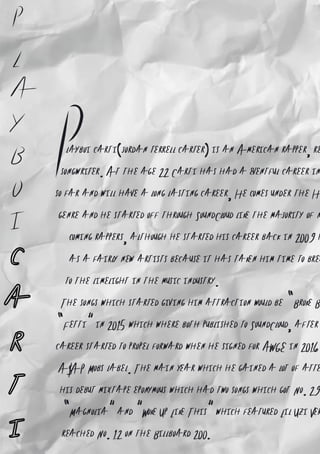 PLAYBOI CARTI
Playboi Carti(Jordan Terrell Carter) is an American rapper,
songwriter. At the age 22 Carti has had a eventful career in
so far and will have a long lasting career, He comes under the
genre and he started off through soundcloud like the majority of
coming rappers, although he started his career back in 2009
as a fairly new artists because it has taken him time to
to the limelight in the music industry.
The songs which started giving him attraction would be "
"Fetti" in 2015 which where both published to Soundcloud, after
career started to propel forward when he signed for AWGE in 2016
A$AP Mobs label. The main year which he gained a lot of
his debut mixtape eponymous which had two songs which got No. 29
"Magnolia" and "Woke Up Like This" which featured Lil Uzi
reached No. 12 on the Billboard 200.